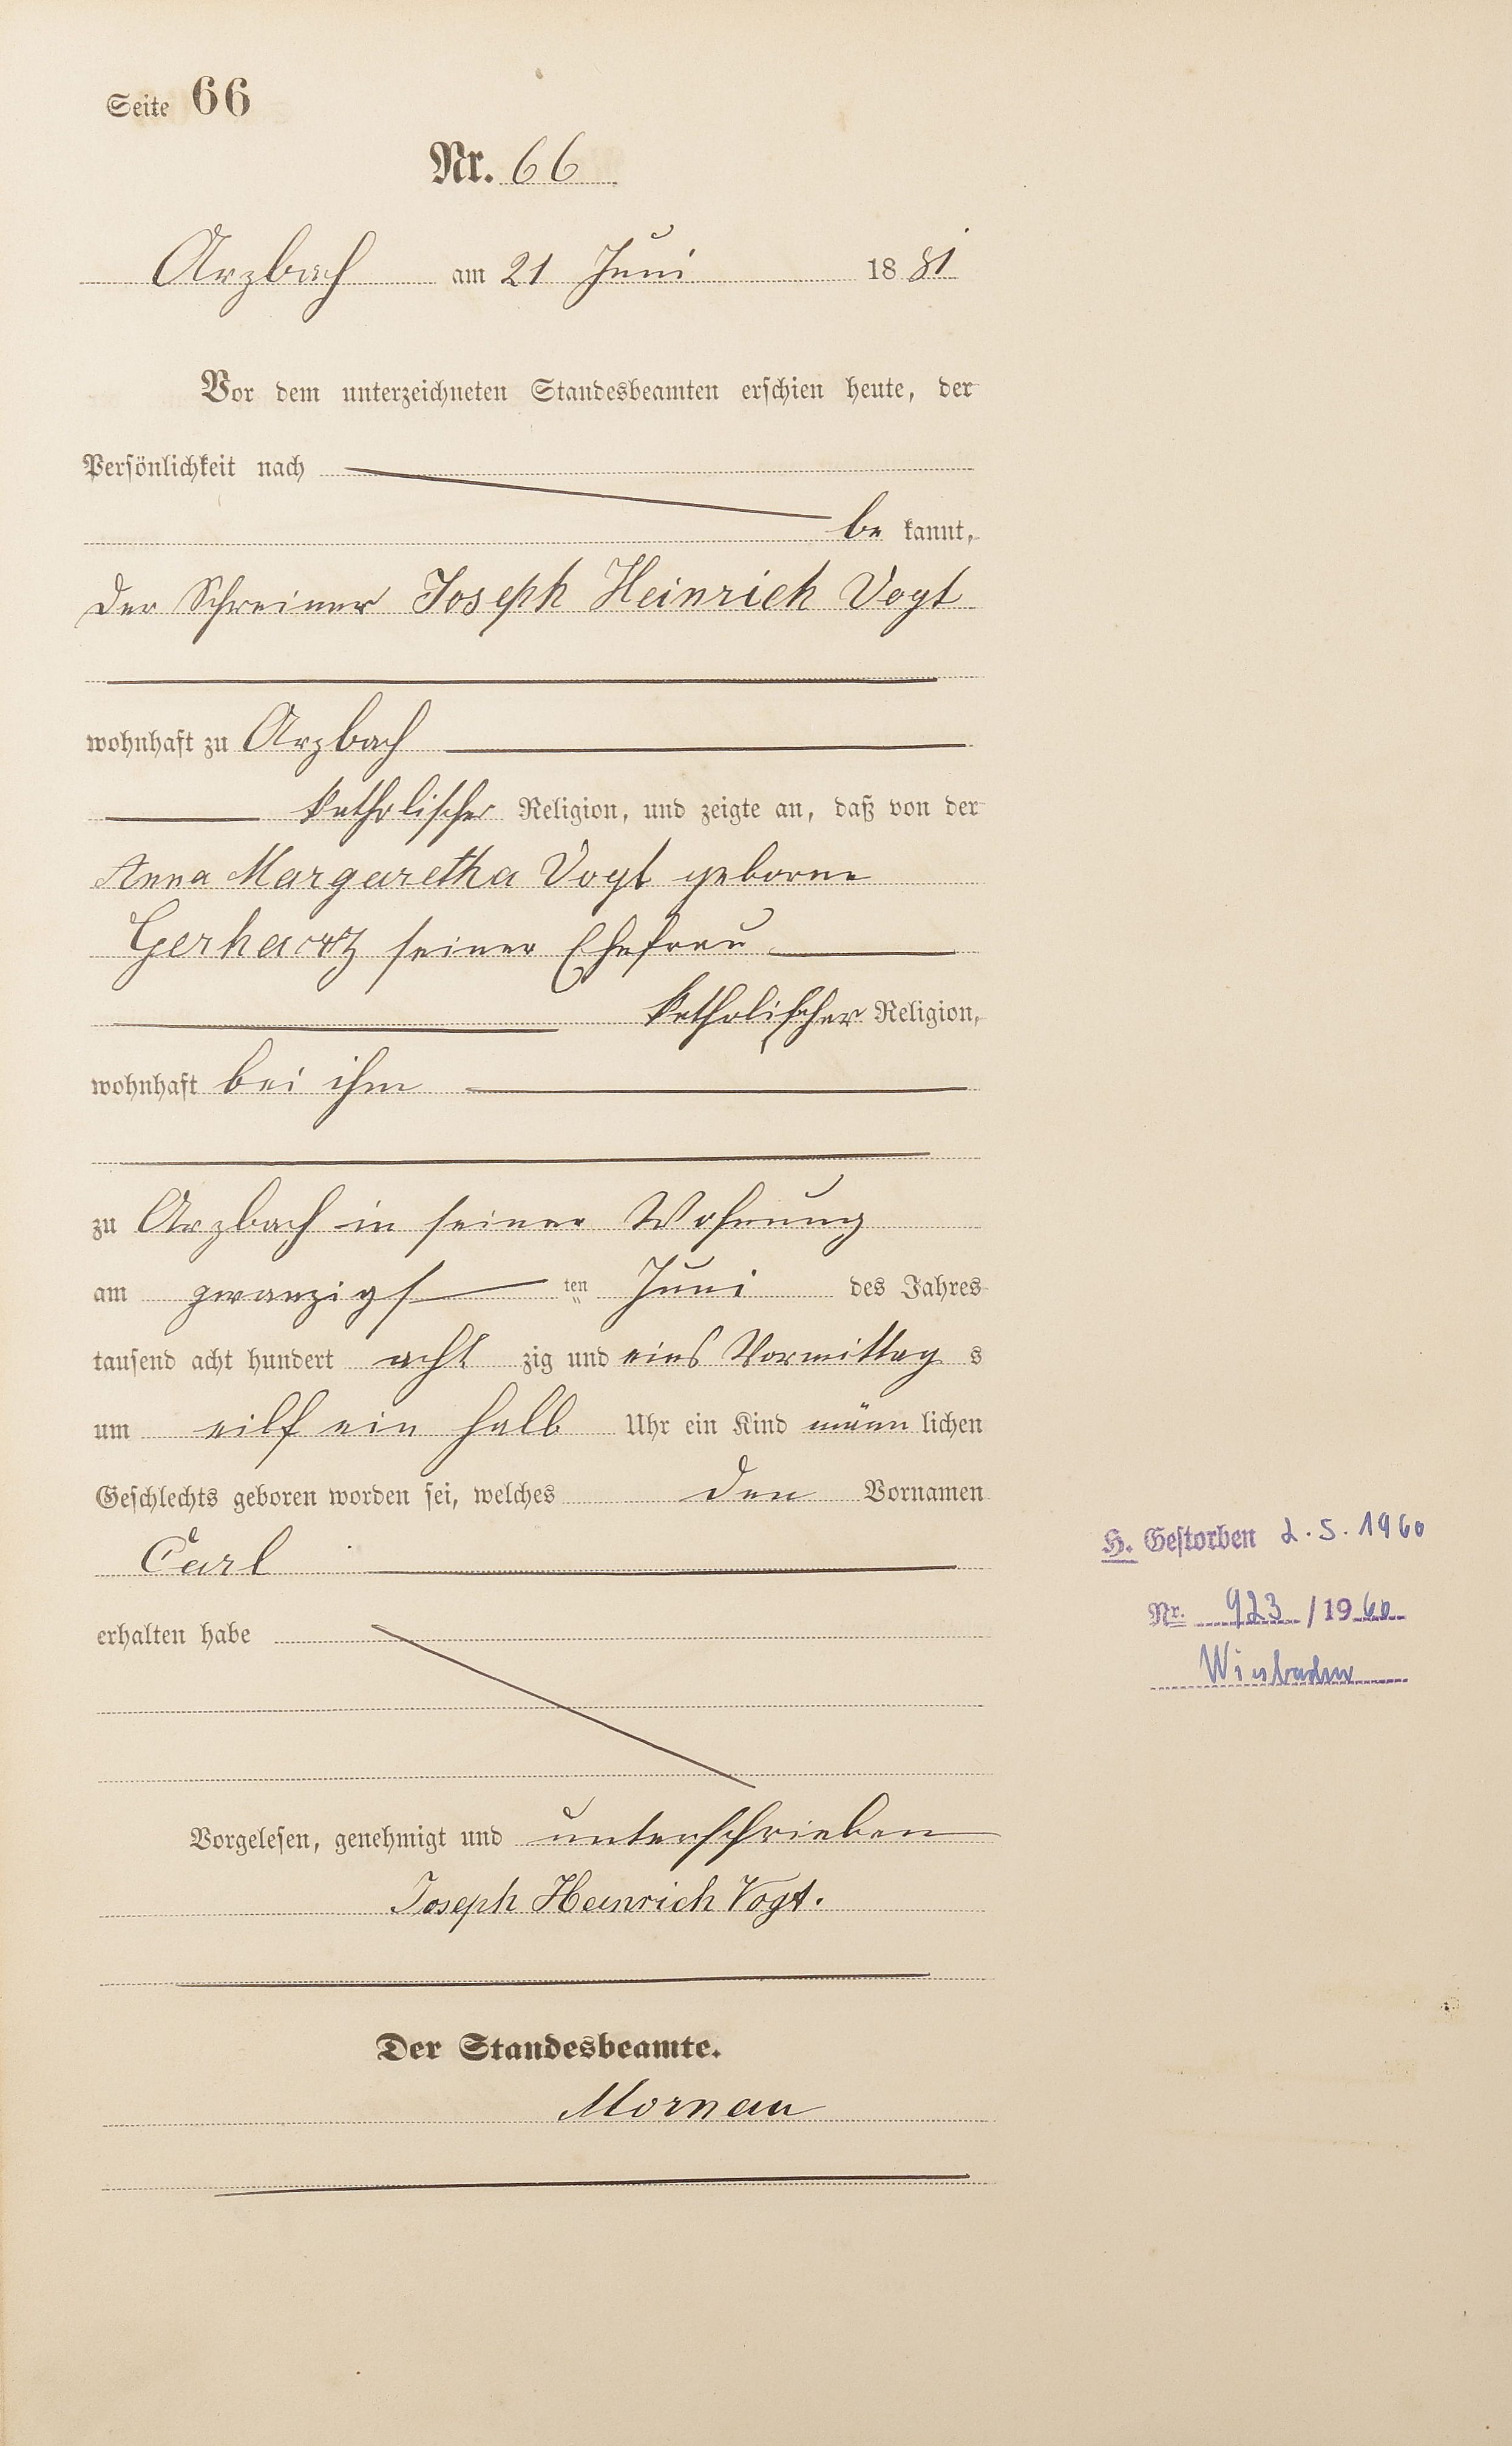 Seite 66
Nr. 66
Arzbach am 21 Juni 1881
Vor dem unterzeichneten Standesbeamten erschien heute, der
Persönlichkeit nach
be kannt,
der Schreiner Joseph Heinrich Vogt
wohnhaft zu Arzbach
katholischer Religion, und zeigte an, daß von der
Anna Margaretha Vogt geborne
Gerhartz seiner Ehefrau
katholischer Religion,
wohnhaft bei ihm
zu Arzbach in seiner Wohnung
am zwanzigsten Juni des Jahres
tausend acht hundert acht zig und eins Vormittag s
um eilf ein halb Uhr ein Kind männ lichen
Geschlechts geboren worden sei, welches den Vornamen
Carl
erhalten habe
Vorgelesen, genehmigt und unterschrieben
Joseph Heinrich Vogt.
Der Standesbeamte.
Mornau
H. Gestorben 2.5.1960
Nr. 923/1960
Wiesbaden